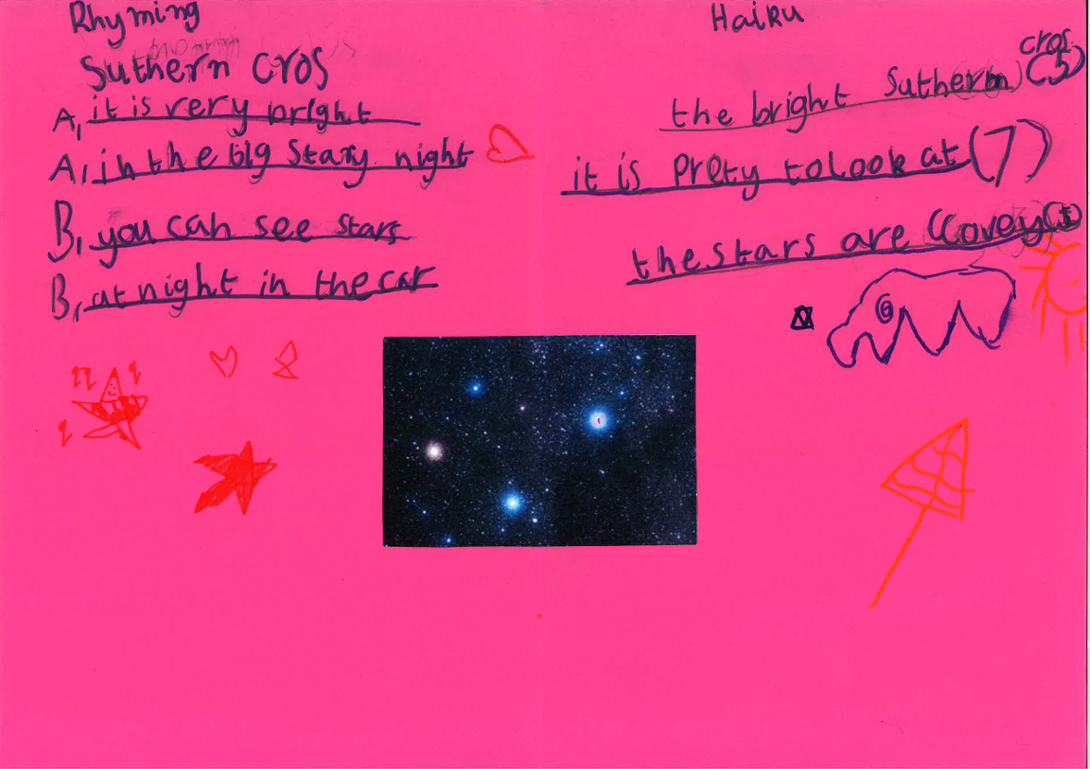 Rhyming
Suthern cros
A, it is very bright
A, in the big stary night
B, you can see stars
B, at night in the car
Haiku
the bright Suthern cros (5)
it is prety to look at (7)
the stars are